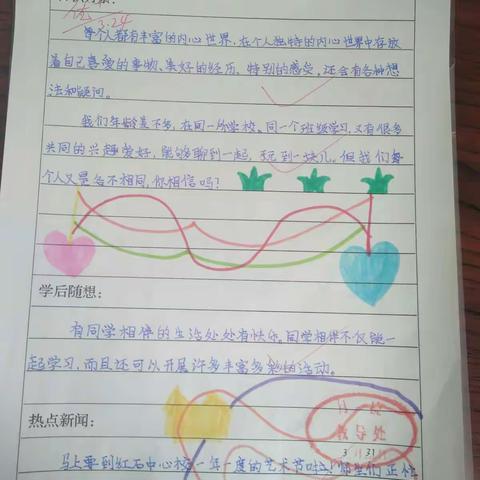 3.24
每个人都有丰富的内心世界,在个人独特的内心世界中存放
着自己喜爱的事物、美好的经历、特别的感受,还会有各种想
法和疑问。
我们年龄差不多,在同一所学校。同一个班级学习,又有很多
共同的兴趣爱好,能够聊到一起,玩到一块儿。但我们每
个人又是各不相同,你相信吗?
学后随想:
有同学相伴的生活处处有快乐。同学相伴不仅能一
起学习,而且还可以开展许多丰富多彩的活动。
热点新闻:
教导处
3月31
马上要到红石中心校一年一度的艺术节啦!